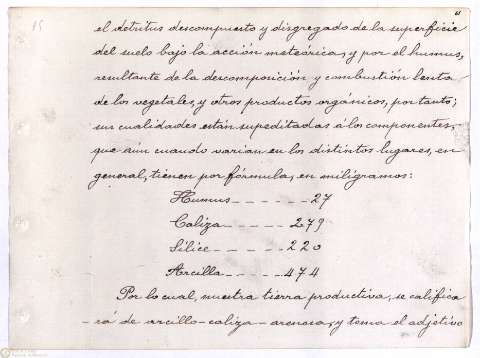 el detritus descompuesto y disgregado de la superficie
del suelo bajo la acción meteórica, y por el humus,
resultante de la descomposición y combustión lenta
de los vegetales, y otros productos orgánicos, por tanto;
sus cualidades están supeditadas á los componentes,
que aún cuando varían en los distintos lugares, en
general, tienen por fórmula, en miligramos:
Humus _ _ _ _ _ _ 27
Caliza _ _ _ _ _ 279
Sílice _ _ _ _ _ 220
Arcilla _ _ _ _ _ 474
Por lo cual, nuestra tierra productiva, se califica
-rá de arcillo-caliza-arenosa; y toma el adjetivo